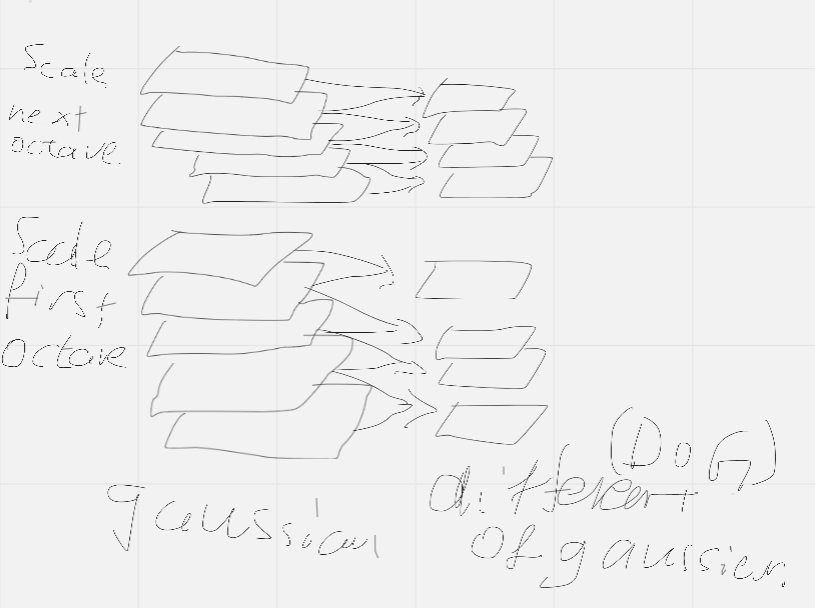 Scale
next
octave
Scale
first
octave
gaussian
(DoG)
different
of gaussien